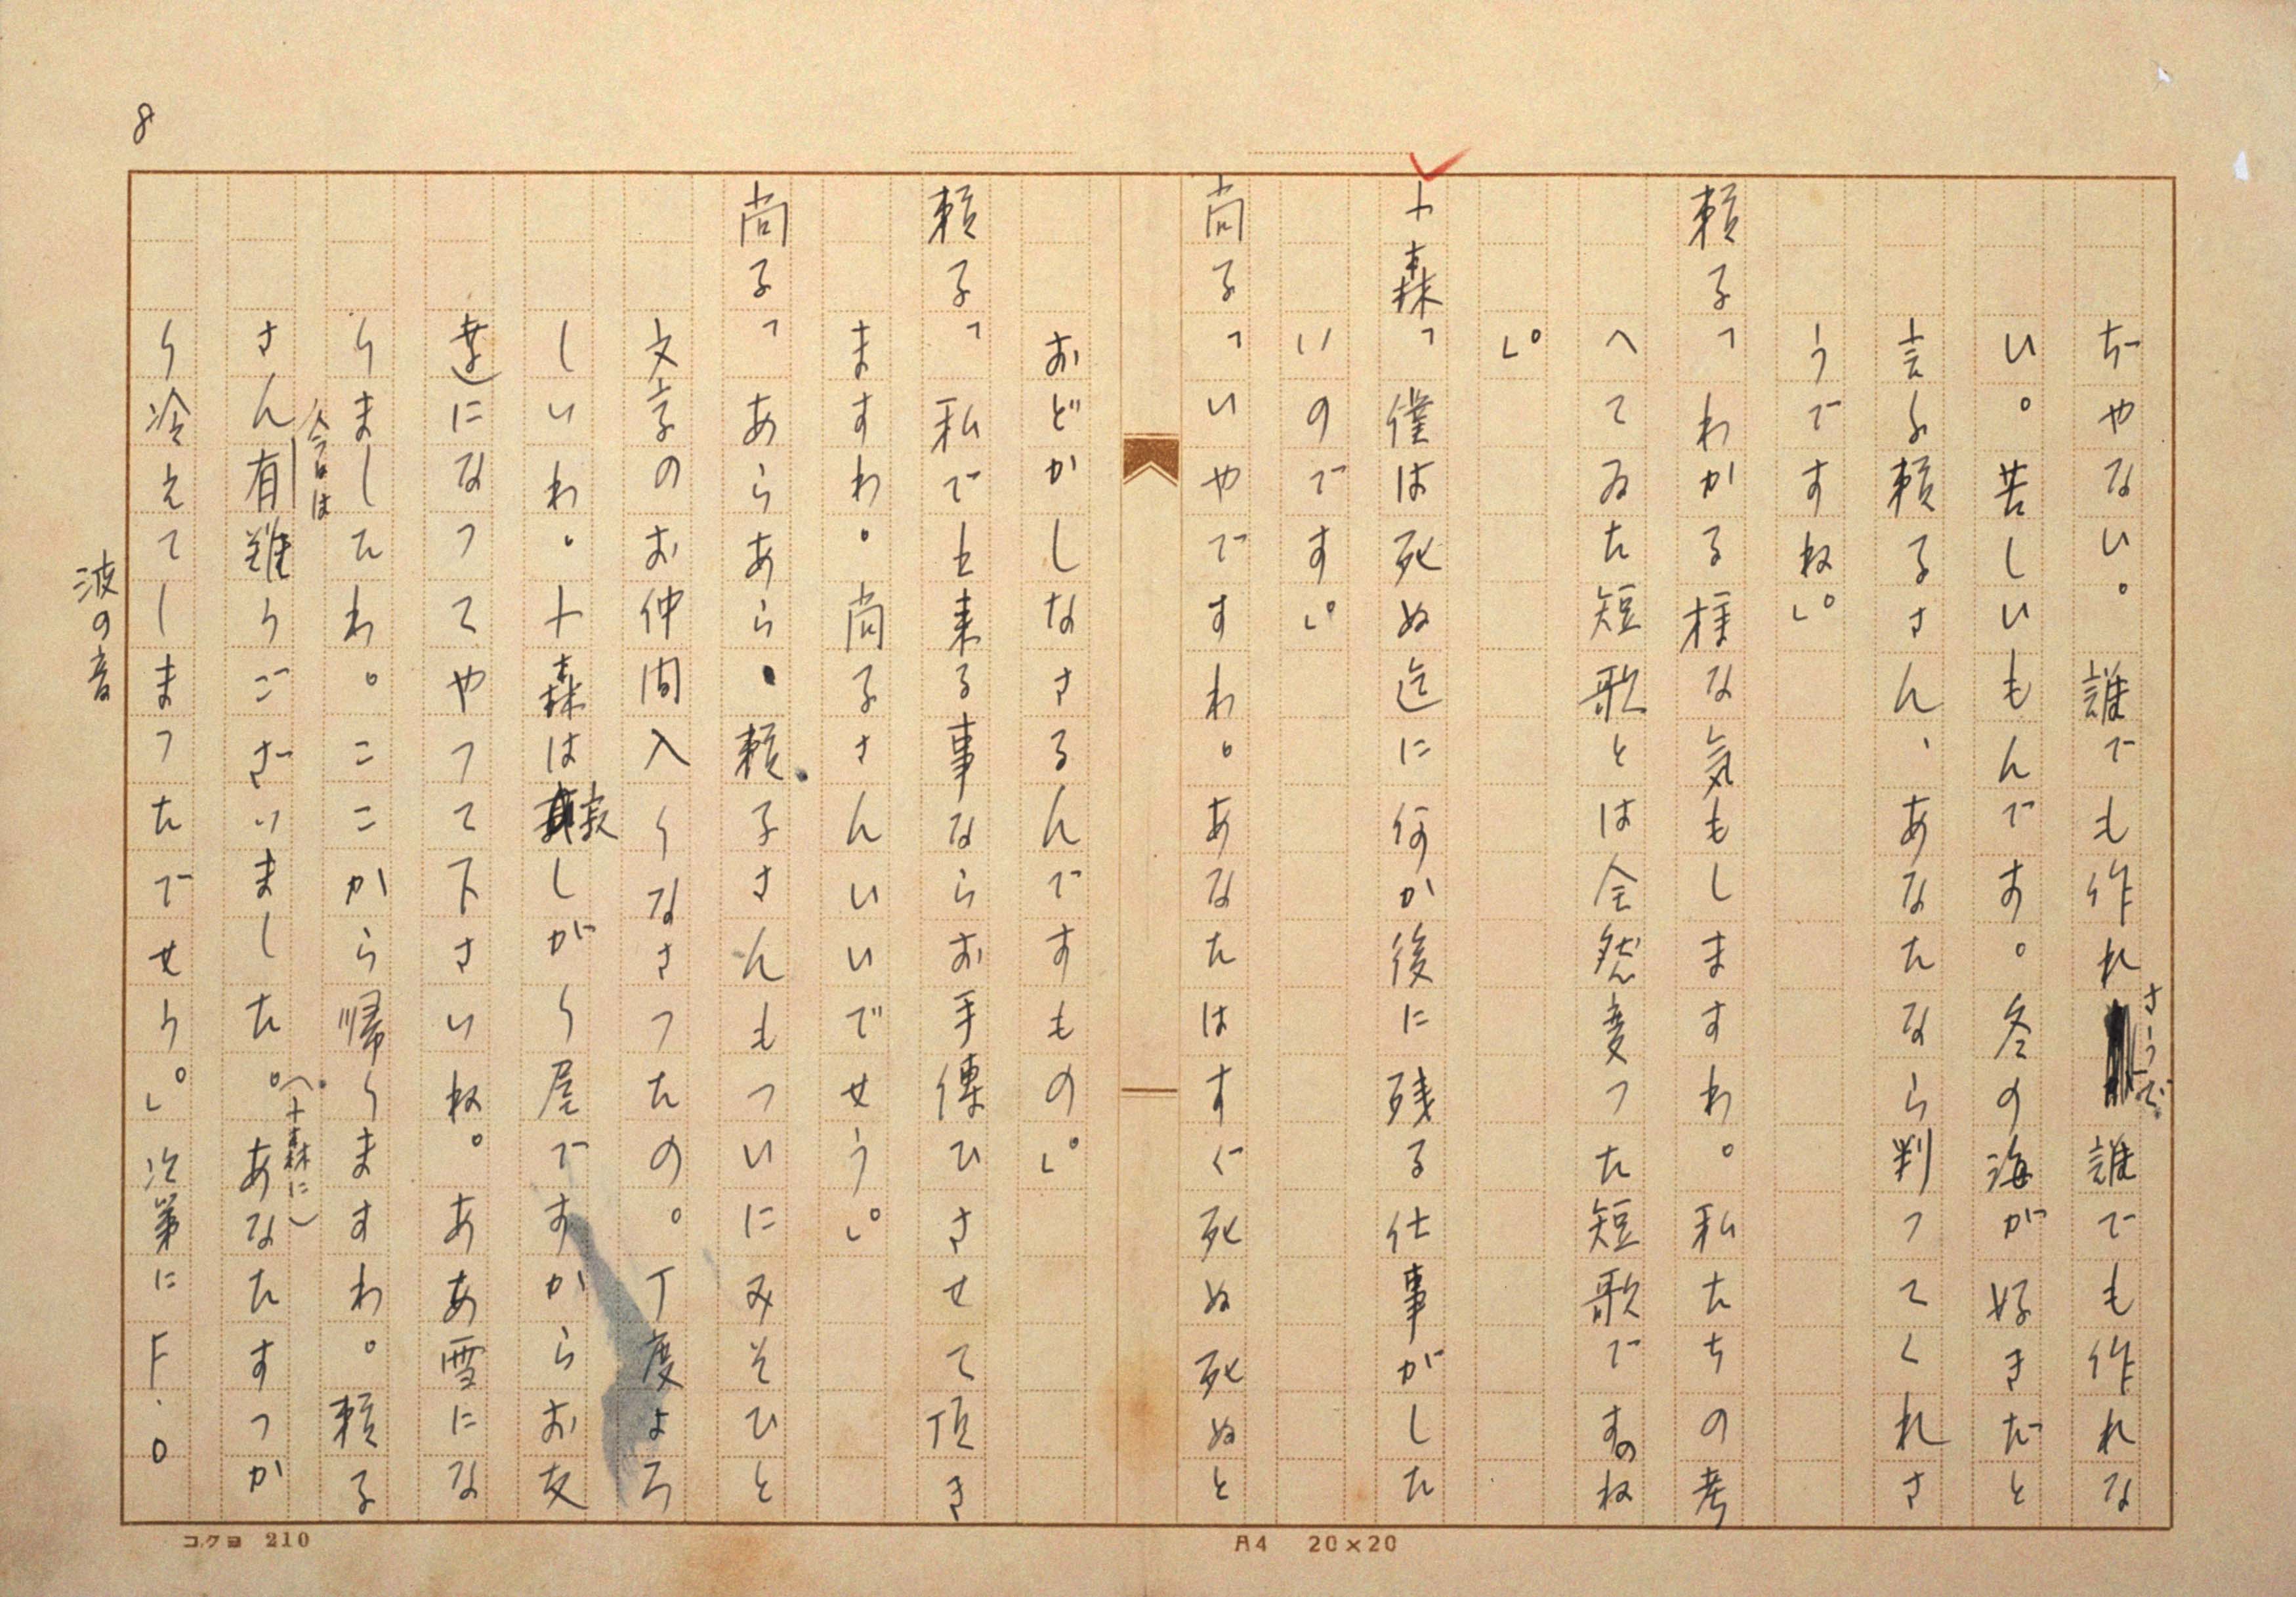 8
ぢやない。誰でも作れさうで誰でも作れな
い。苦しいもんです。冬の海が好きだと
言ふ頼子さん、あなたなら判つてくれさ
うですね。」
頼子「わかる様な気もしますわ。私たちの考
へてゐた短歌とは全然変つた短歌ですのね
。」
十森「僕は死ぬ迄に何か後に残る仕事がした
いのです。」
尚子「いやですわ。あなたはすぐ死ぬ死ぬと
おどかしなさるんですもの。」
頼子「私で出来る事ならお手傳ひさせて頂き
ますわ。尚子さんいいでせう。」
尚子「あらあら・頼子さんもつひにみそひと
文字のお仲間入りなさつたの。丁度よろ
しいわ。十森は寂しがり屋ですからお友
達になつてやつて下さいね。ああ雪にな
りましたわ。ここから帰りますわ。頼子
さん今日は有難うございました。(十森に)あなたすつか
り冷えてしまつたでせう。」次第にF・O
波の音
コクヨ 210
A4 20×20